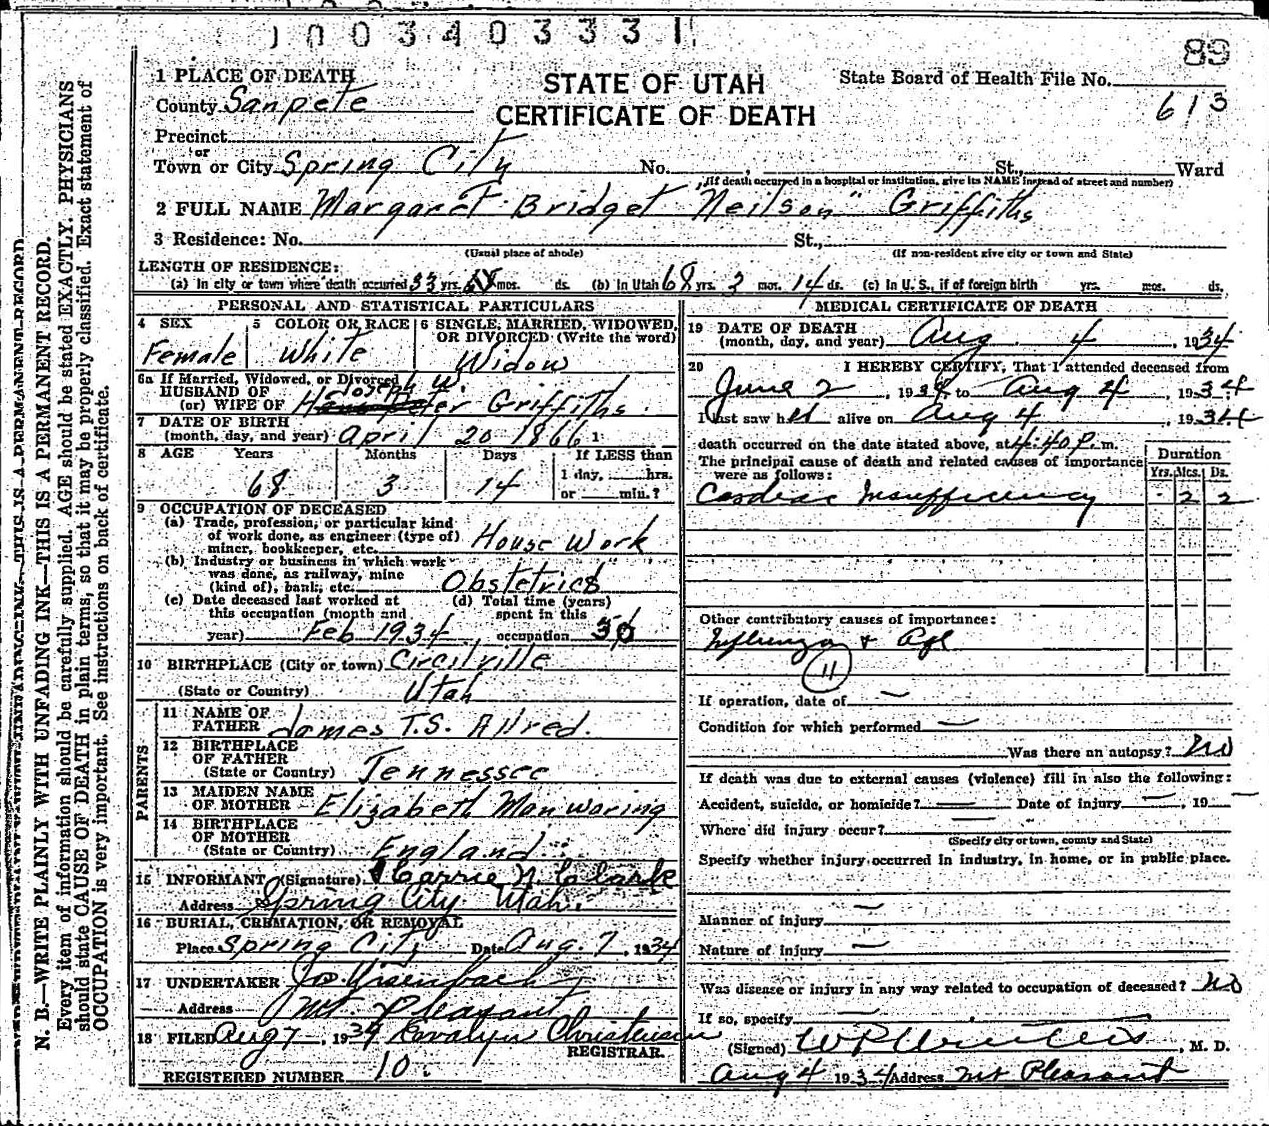 1003403331
89
1 PLACE OF DEATH
County Sanpete
STATE OF UTAH
CERTIFICATE OF DEATH
State Board of Health File No.
613
Precinct
or
Town or City Spring City No. St., Ward
(If death occurred in a hospital or institution, give its NAME instead of street and number)
2 FULL NAME Margaret Bridget Neilson Griffiths
3 Residence: No. St.,
(Usual place of abode) (If non-resident give city or town and State)
LENGTH OF RESIDENCE:
(a) In city or town where death occurred 33 yrs. mos. ds. (b) In Utah 68 yrs. 3 mos. 14 ds. (c) In U. S., if of foreign birth yrs. mos. ds.
PERSONAL AND STATISTICAL PARTICULARS
4 SEX
Female
5 COLOR OR RACE
White
6 SINGLE, MARRIED, WIDOWED, OR DIVORCED (Write the word)
Widow
6a If Married, Widowed, or Divorced
HUSBAND OF
(or) WIFE OF Joseph W. Griffiths
7 DATE OF BIRTH
(month, day, and year) April 20 1866
8 AGE Years Months Days If LESS than
1 day, hrs.
68 3 14 or min.?
9 OCCUPATION OF DECEASED
(a) Trade, profession, or particular kind
of work done, as engineer (type of)
miner, bookkeeper, etc. House Work
(b) Industry or business in which work
was done, as railway, mine
(kind of), bank, etc. Obstetrics
(c) Date deceased last worked at
this occupation (month and
year) Feb 1934
(d) Total time (years)
spent in this
occupation 36
10 BIRTHPLACE (City or town) Circilville
(State or Country) Utah
PARENTS
11 NAME OF
FATHER James T.S. Allred.
12 BIRTHPLACE
OF FATHER
(State or Country) Tennessee
13 MAIDEN NAME
OF MOTHER Elizabeth Manwaring
14 BIRTHPLACE
OF MOTHER
(State or Country) England
15 INFORMANT (Signature) Carrie N. Clark
Address Spring City Utah.
16 BURIAL, CREMATION, OR REMOVAL
Place Spring City Date Aug. 7, 1934
17 UNDERTAKER
Address Mt. Pleasant
18 FILED Aug 7, 1934 Christensen
REGISTRAR.
REGISTERED NUMBER 10.
MEDICAL CERTIFICATE OF DEATH
19 DATE OF DEATH
(month, day, and year) Aug. 4, 1934
20 I HEREBY CERTIFY, That I attended deceased from
June 2, 1934 to Aug 4, 1934
I last saw her alive on Aug 4, 1934
death occurred on the date stated above, at 4:40 P. m.
The principal cause of death and related causes of importance
were as follows:
Duration
Yrs. Mos. Ds.
Cardiac Insufficiency - 2 2
Other contributory causes of importance:
Influenza & Age
11
If operation, date of —
Condition for which performed —
Was there an autopsy? No
If death was due to external causes (violence) fill in also the following:
Accident, suicide, or homicide? — Date of injury —, 19 —
Where did injury occur?
(Specify city or town, county and State)
Specify whether injury occurred in industry, in home, or in public place.
—
Manner of injury —
Nature of injury —
Was disease or injury in any way related to occupation of deceased? No
If so, specify —
(Signed) , M. D.
Aug 4 1934 Address Mt Pleasant
N. B.—WRITE PLAINLY WITH UNFADING INK—THIS IS A PERMANENT RECORD.
Every item of information should be carefully supplied. AGE should be stated EXACTLY. PHYSICIANS
should state CAUSE OF DEATH in plain terms, so that it may be properly classified. Exact statement of
OCCUPATION is very important. See instructions on back of certificate.